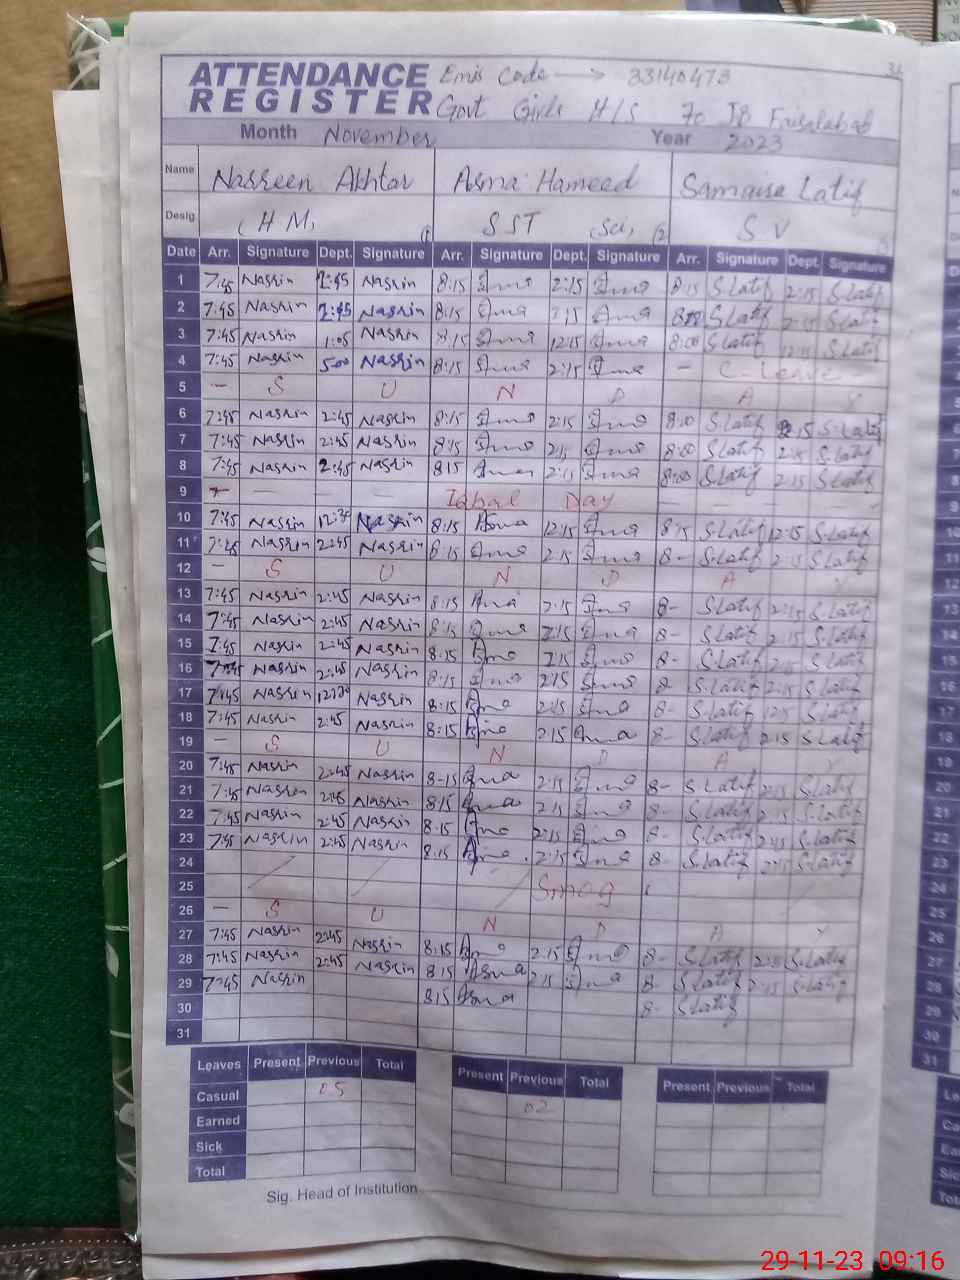 ATTENDANCE Emis Code → 33140473
REGISTER Govt Girls H/S 70 JB Faisalabad
Month November Year 2023
Name Nasreen Akhtar Asma Hameed Samaisa Latif
Desig. (H M) (1 SST (Sci) (2 S V
Date Arr. Signature Dept. Signature Arr. Signature Dept. Signature Arr. Signature Dept. Signature
1 7:45 Nasrin 2:45 Nasrin 8:15 2:15 8:15 S Latif 2:15 S Latif
2 7:45 Nasrin 2:45 Nasrin 8:15 S Latif 2:15 S Latif
3 7:45 Nasrin 1:05 Nasrin 8:15 12:15 8:00 S Latif 12:15 S Latif
4 7:45 Nasrin 5:00 Nasrin 8:15 2:15 — C-Leave
5 — S U N D A Y
6 7:45 Nasrin 2:45 Nasrin 8:15 2:15 8:00 S Latif 2:15 S Latif
7 7:45 Nasrin 2:45 Nasrin 8:15 2:15 8:00 S Latif 2:15 S Latif
8 7:45 Nasrin 2:45 Nasrin 8:15 2:15 8:00 S Latif 2:15 S Latif
9 — — — — Iqbal Day — — — —
10 7:45 Nasrin Nasrin 8:15 Asma 12:15 8:15 S Latif 12:15 S Latif
11 7:45 Nasrin 2:45 Nasrin 8:15 2:15 8- S Latif 2:15 S Latif
12 — S U N D A Y
13 7:45 Nasrin 2:45 Nasrin 8:15 Asma 2:15 8- S Latif 2:15 S Latif
14 7:45 Nasrin 2:45 Nasrin 8:15 2:15 8- S Latif 2:15 S Latif
15 7:45 Nasrin 2:45 Nasrin 8:15 2:15 8- S Latif 2:15 S Latif
16 7:45 Nasrin 2:45 Nasrin 8:15 2:15 8- S Latif 2:15 S Latif
17 7:45 Nasrin Nasrin 8:15 2:15 8- S Latif 12:15 S Latif
18 7:45 Nasrin 2:45 Nasrin 8:15 2:15 8- S Latif 2:15 S Latif
19 — S U N D A Y
20 7:45 Nasrin 2:45 Nasrin 8-15 2:15 8- S Latif 2:15 S Latif
21 7:45 Nasreen 2:45 Nasrin 8:15 2:15 8- S Latif 2:15 S Latif
22 7:45 Nasrin 2:45 Nasrin 8:15 2:15 8- S Latif 2:15 S Latif
23 7:45 Nasrin 2:45 Nasrin 8:15 2:15 8- S Latif 2:15 S Latif
24
25 Smog
26 — S U N D A Y
27 7:45 Nasrin 2:45 Nasrin 8:15 2:15 8- S Latif 2:15 S Latif
28 7:45 Nasrin 2:45 Nasrin 8:15 Asma 2:15 8- S Latif 2:15 S Latif
29 7:45 Nasrin 8:15 Asma 8- S Latif
30
31
Leaves Present Previous Total Present Previous Total Present Previous Total
Casual 05 02
Earned
Sick
Total
Sig. Head of Institution
29-11-23 09:16